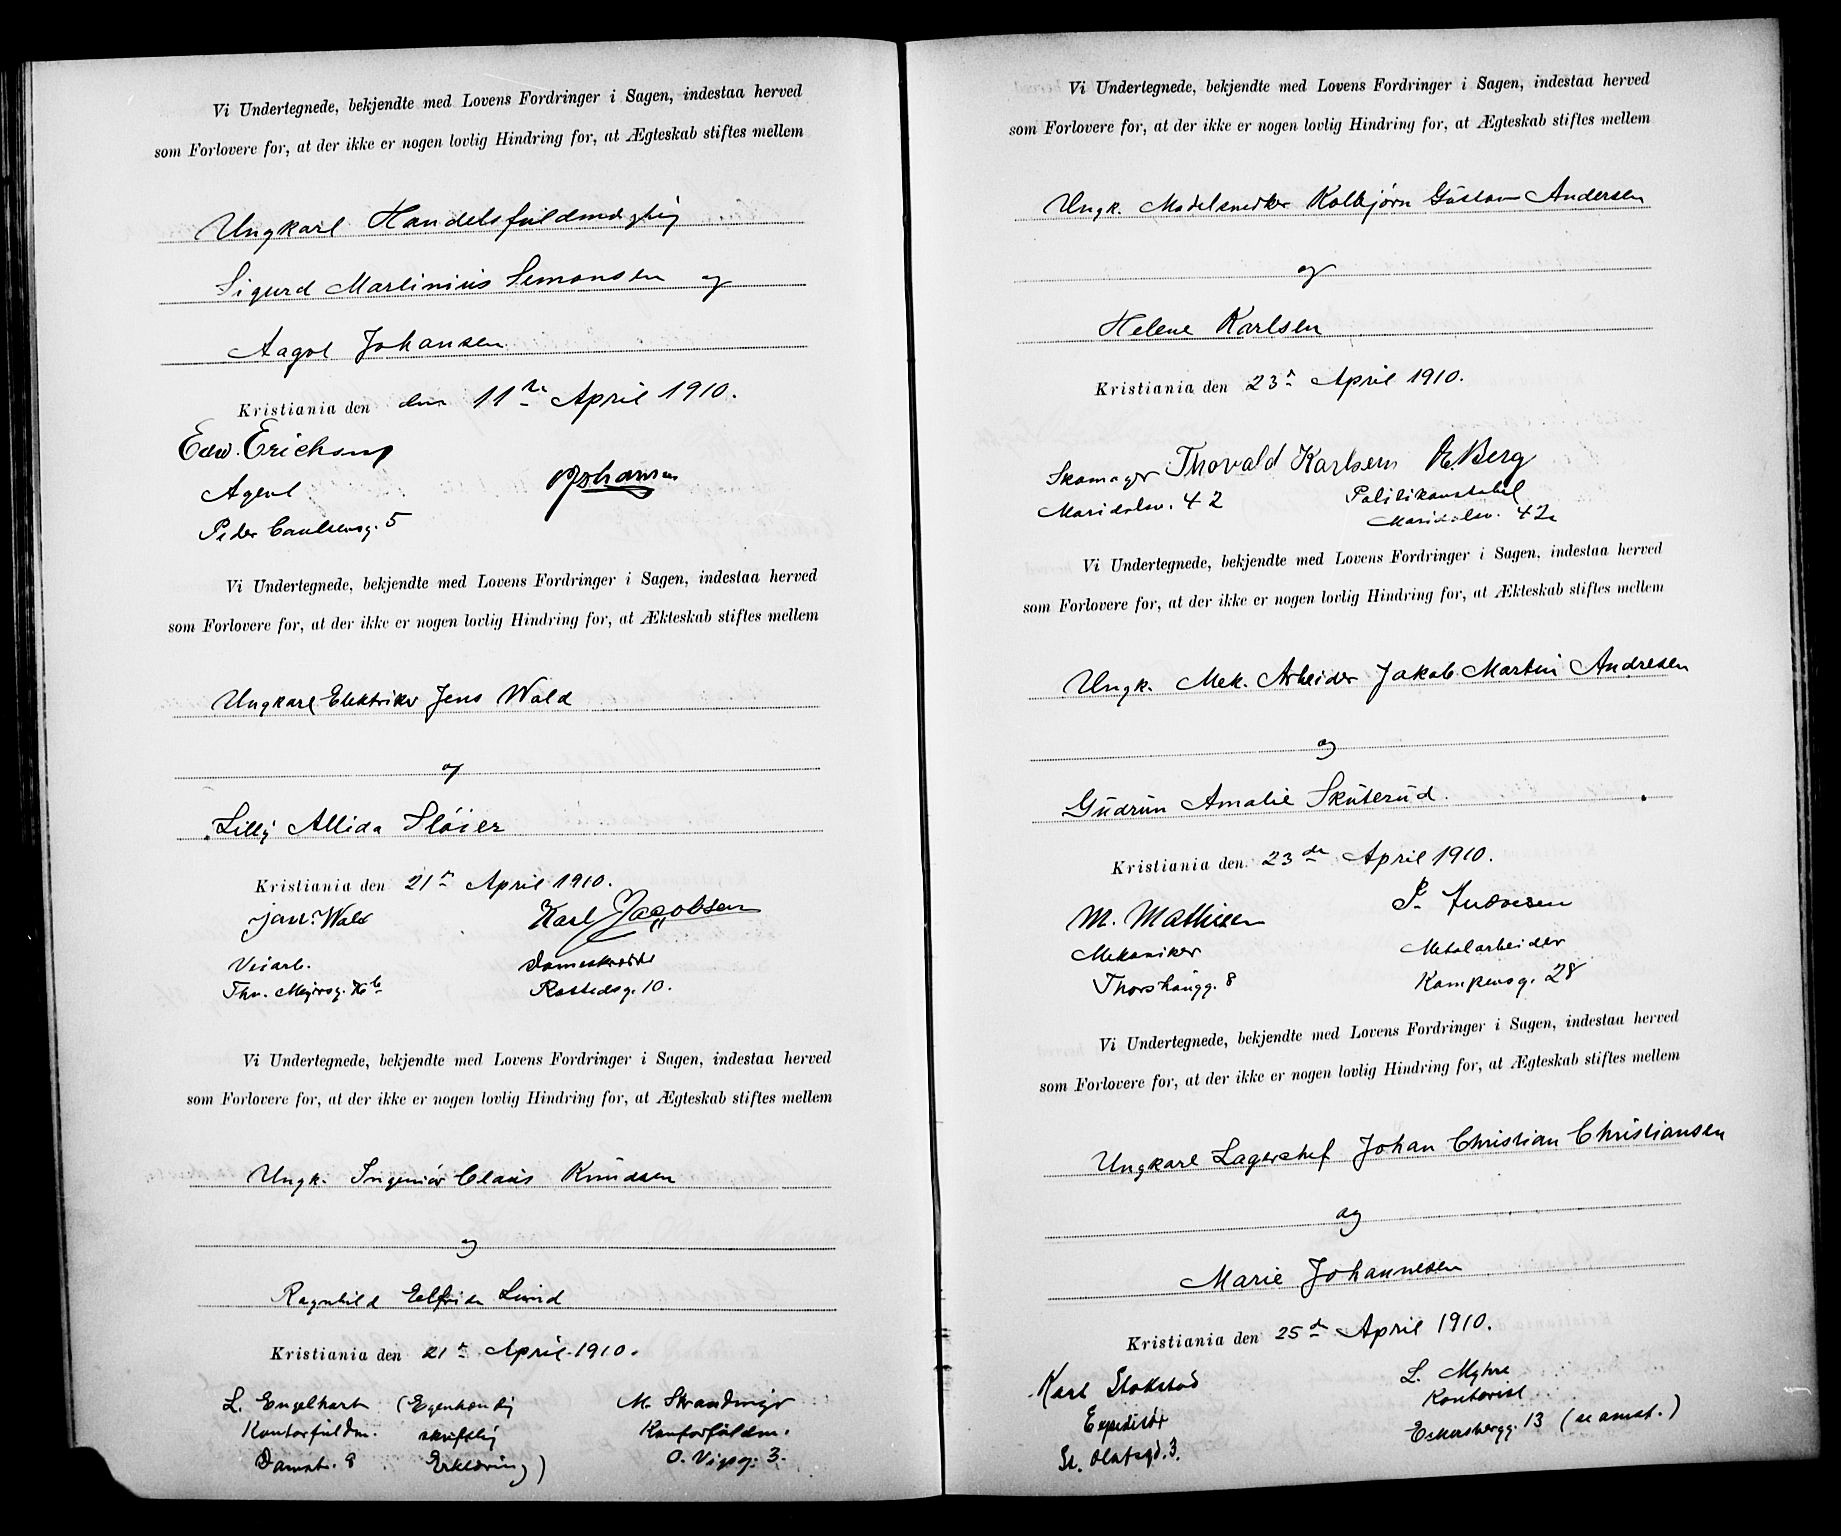 Vi Undertegnede, bekjendte med Lovens Fordringer i Sagen, indestaa herved
som Forlovere for, at der ikke er nogen lovlig Hindring for, at Ægteskab stiftes mellem
Ungkarl Handelsfuldmægtig
Sigurd Martinius Simonsen og
Aagot Johansen
Kristiania den den 11te April 1910.
Edw. Erichsen
Johansen
Agent
Peder Claussensg. 5
Vi Undertegnede, bekjendte med Lovens Fordringer i Sagen, indestaa herved
som Forlovere for, at der ikke er nogen lovlig Hindring for, at Ækteskab stiftes mellem
Ungkarl Elektriker Jens Wold
og
Lilly Allida Sløier
Kristiania den 21de April 1910.
Wold Karl Jacobsen
Veiarb. Dameskrædder
Thv. Meyersg. Rostedsg. 10.
Vi Undertegnede, bekjendte med Lovens Fordringer i Sagen, indestaa herved
som Forlovere for, at der ikke er nogen lovlig Hindring for, at Ægteskab stiftes mellem
Ungk. Ingeniør Claus Knudsen
og
Ragnhild Elfrida Lund
Kristiania den 21de April 1910.
L. Engelhart (Egenhændig M. Strandmyr
Kontorfuldm. skriftlig Kontorfuldm.
Damst. 8 Erklæring) O. Vigsg. 3.
Vi Undertegnede, bekjendte med Lovens Fordringer i Sagen, indestaa herved
som Forlovere for, at der ikke er nogen lovlig Hindring for, at Ægteskab stiftes mellem
Ungk. Modelsnedker Kolbjørn Gustav Andersen
og
Helene Karlsen
Kristiania den 23de April 1910.
Skomager Thovald Karlsen E. Berg
Maridalsv. 42 Politikonstabel
Maridalsv. 42
Vi Undertegnede, bekjendte med Lovens Fordringer i Sagen, indestaa herved
som Forlovere for, at der ikke er nogen lovlig Hindring for, at Ækteskab stiftes mellem
Ungk. Mek. Arbeider Jakob Martin Andresen
og
Gudrun Amalie Skuterud.
Kristiania den 23de April 1910.
M. Mathisen P. Andresen
Mekaniker Metalarbeider
Thorshaugg. 8 Kampensg. 28
Vi Undertegnede, bekjendte med Lovens Fordringer i Sagen, indestaa herved
som Forlovere for, at der ikke er nogen lovlig Hindring for, at Ægteskab stiftes mellem
Ungkarl Lagerchef Johan Christian Christiansen
og
Marie Johannesen
Kristiania den 25de April 1910.
Karl Stokstad L. Myhre
Expeditør Kontorist
St. Olafsgd. 3. Eckersbergg. 13